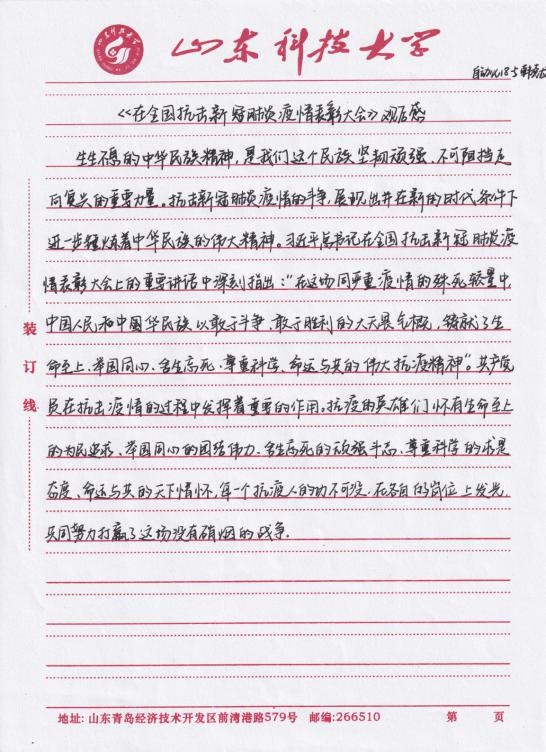 山东科技大学
自动化18-5 韩
《在全国抗击新冠肺炎疫情表彰大会》观后感
生生不息的中华民族精神,是我们这个民族坚韧顽强、不可阻挡走
向复兴的重要力量。抗击新冠肺炎疫情的斗争,展现出并在新的时代条件下
进一步锤炼着中华民族的伟大精神。习近平总书记在全国抗击新冠肺炎疫
情表彰大会上的重要讲话中深刻指出:"在这场同严重疫情的殊死较量中,
中国人民和中国华民族以敢于斗争、敢于胜利的大无畏气概,铸就了生
命至上、举国同心、舍生忘死、尊重科学、命运与共的伟大抗疫精神"。共产党
员在抗击疫情的过程中发挥着重要的作用。抗疫的英雄们怀有生命至上
的为民追求、举国同心的团结伟力、舍生忘死的顽强斗志、尊重科学的求是
态度、命运与共的天下情怀,每一个抗疫人的功不可没,在各自的岗位上发光,
共同努力打赢了这场没有硝烟的战争.
装
订
线
地址:山东青岛经济技术开发区前湾港路579号 邮编:266510 第 页